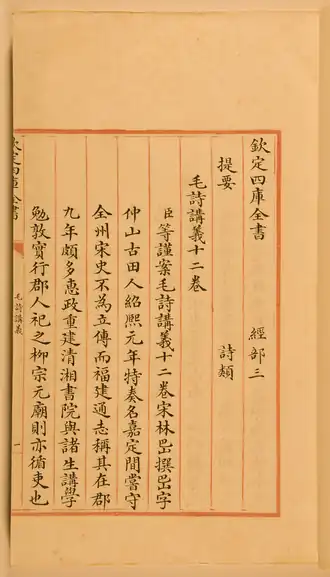 欽定四庫全書 經部三
提要 詩類
毛詩講義十二卷
臣等謹案毛詩講義十二卷宋林岊撰岊字
仲山古田人紹熙元年特奏名嘉定間嘗守
全州宋史不為立傳而福建通志稱其在郡
九年頗多惠政重建清湘書院與諸生講學
勉敦實行郡人祀之柳宗元廟則亦循吏也
欽定四庫全書
毛詩講義
一